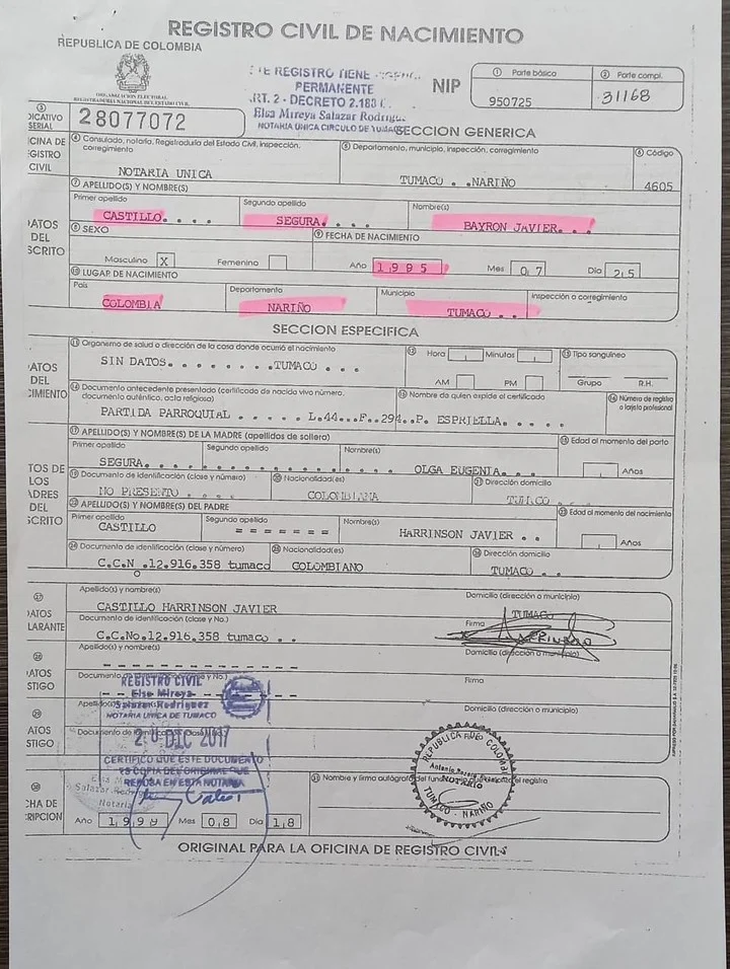 REGISTRO CIVIL DE NACIMIENTO
REPUBLICA DE COLOMBIA
ORGANIZACION ELECTORAL
REGISTRADURIA NACIONAL DEL ESTADO CIVIL
REGISTRO TIENE
PERMANENTE
ART. 2 - DECRETO 2.188
Elsa Mireya Salazar Rodrigu
NOTARIA UNICA CIRCULO DE TUMACO
NIP
① Parte básica
950725
② Parte compl.
31168
③
DICATIVO
SERIAL
28077072
SECCION GENERICA
CINA DE
GISTRO
CIVIL
④ Consulado, notaría, Registraduría del Estado Civil, inspección, corregimiento
NOTARIA UNICA
⑤ Departamento, municipio, inspección, corregimiento
TUMACO . . NARIÑO
⑥ Código
4605
DATOS
DEL
SCRITO
⑦ APELLIDO(S) Y NOMBRE(S)
Primer apellido
CASTILLO. . . .
Segundo apellido
SEGURA. . . .
Nombre(s)
BAYRON JAVIER. . .
⑧ SEXO
Masculino X
Femenino
⑨ FECHA DE NACIMIENTO
Año 1995
Mes 07
Día 25
⑩ LUGAR DE NACIMIENTO
País
COLOMBIA
Departamento
NARIÑO
Municipio
TUMACO . .
Inspección o corregimiento
SECCION ESPECIFICA
DATOS
DEL
CIMIENTO
⑪ Organismo de salud o dirección de la casa donde ocurrió el nacimiento
SIN DATOS. . . . . . . .TUMACO . . .
⑫ Hora
Minutos
AM
PM
⑬ Tipo sanguíneo
Grupo
R.H.
⑭ Documento antecedente presentado (certificado de nacido vivo número, documento auténtico, acta religiosa)
PARTIDA PARROQUIAL . . . . . L.44...F..294..P. ESPRIELLA. . . . .
⑮ Nombre de quien expide el certificado
⑯ Número de registro o tarjeta profesional
TOS DE
LOS
ADRES
DEL
SCRITO
⑰ APELLIDO(S) Y NOMBRE(S) DE LA MADRE (apellidos de soltera)
Primer apellido
SEGURA. . .
Segundo apellido
Nombre(s)
OLGA EUGENIA. . .
⑱ Edad al momento del parto
Años
⑲ Documento de identificación (clase y número)
NO PRESENTO . . . .
⑳ Nacionalidad(es)
COLOMBIANA
㉑ Dirección domicilio
TUMACO . . .
㉒ APELLIDO(S) Y NOMBRE(S) DEL PADRE
Primer apellido
CASTILLO
Segundo apellido
- - - - - - -
Nombre(s)
HARRINSON JAVIER . .
㉓ Edad al momento del nacimiento
Años
㉔ Documento de identificación (clase y número)
C.C.N .12.916.358 tumaco
㉕ Nacionalidad(es)
COLOMBIANO
㉖ Dirección domicilio
TUMACO . .
㉗
DATOS
LARANTE
Apellido(s) y nombre(s)
CASTILLO HARRINSON JAVIER
Domicilio (dirección o municipio)
TUMACO
Documento de identificación (clase y No.)
C.C.No.12.916.358 tumaco . .
Firma
㉘
DATOS
STIGO
Apellido(s) y nombre(s)
Domicilio (dirección o municipio)
Firma
REGISTRO CIVIL
Elsa Mireya
Salazar Rodriguez
NOTARIA UNICA DE TUMACO
㉙
DATOS
STIGO
Domicilio (dirección o municipio)
Firma
20 DIC 2017
CERTIFICO QUE ESTE DOCUMENTO
ES COPIA DEL ORIGINAL QUE
REPOSA EN ESTA NOTARIA
㉚
CHA DE
RIPCION
Año 1999
Mes 08
Día 18
㉛ Nombre y firma autógrafa del
REPUBLICA DE COLOMBIA
NOTARIO
TUMACO - NARIÑO
ORIGINAL PARA LA OFICINA DE REGISTRO CIVIL